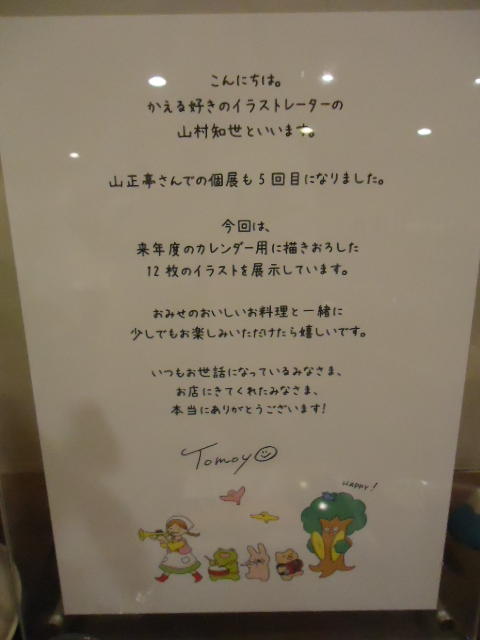 こんにちは。
かえる好きのイラストレーターの
山村知世といいます。
山正亭さんでの個展も5回目になりました。
今回は、
来年度のカレンダー用に描きおろした
12枚のイラストを展示しています。
おみせのおいしいお料理と一緒に
少しでもお楽しみいただけたら嬉しいです。
いつもお世話になっているみなさま、
お店にきてくれたみなさま、
本当にありがとうございます!
Tomoyo
HAPPY!